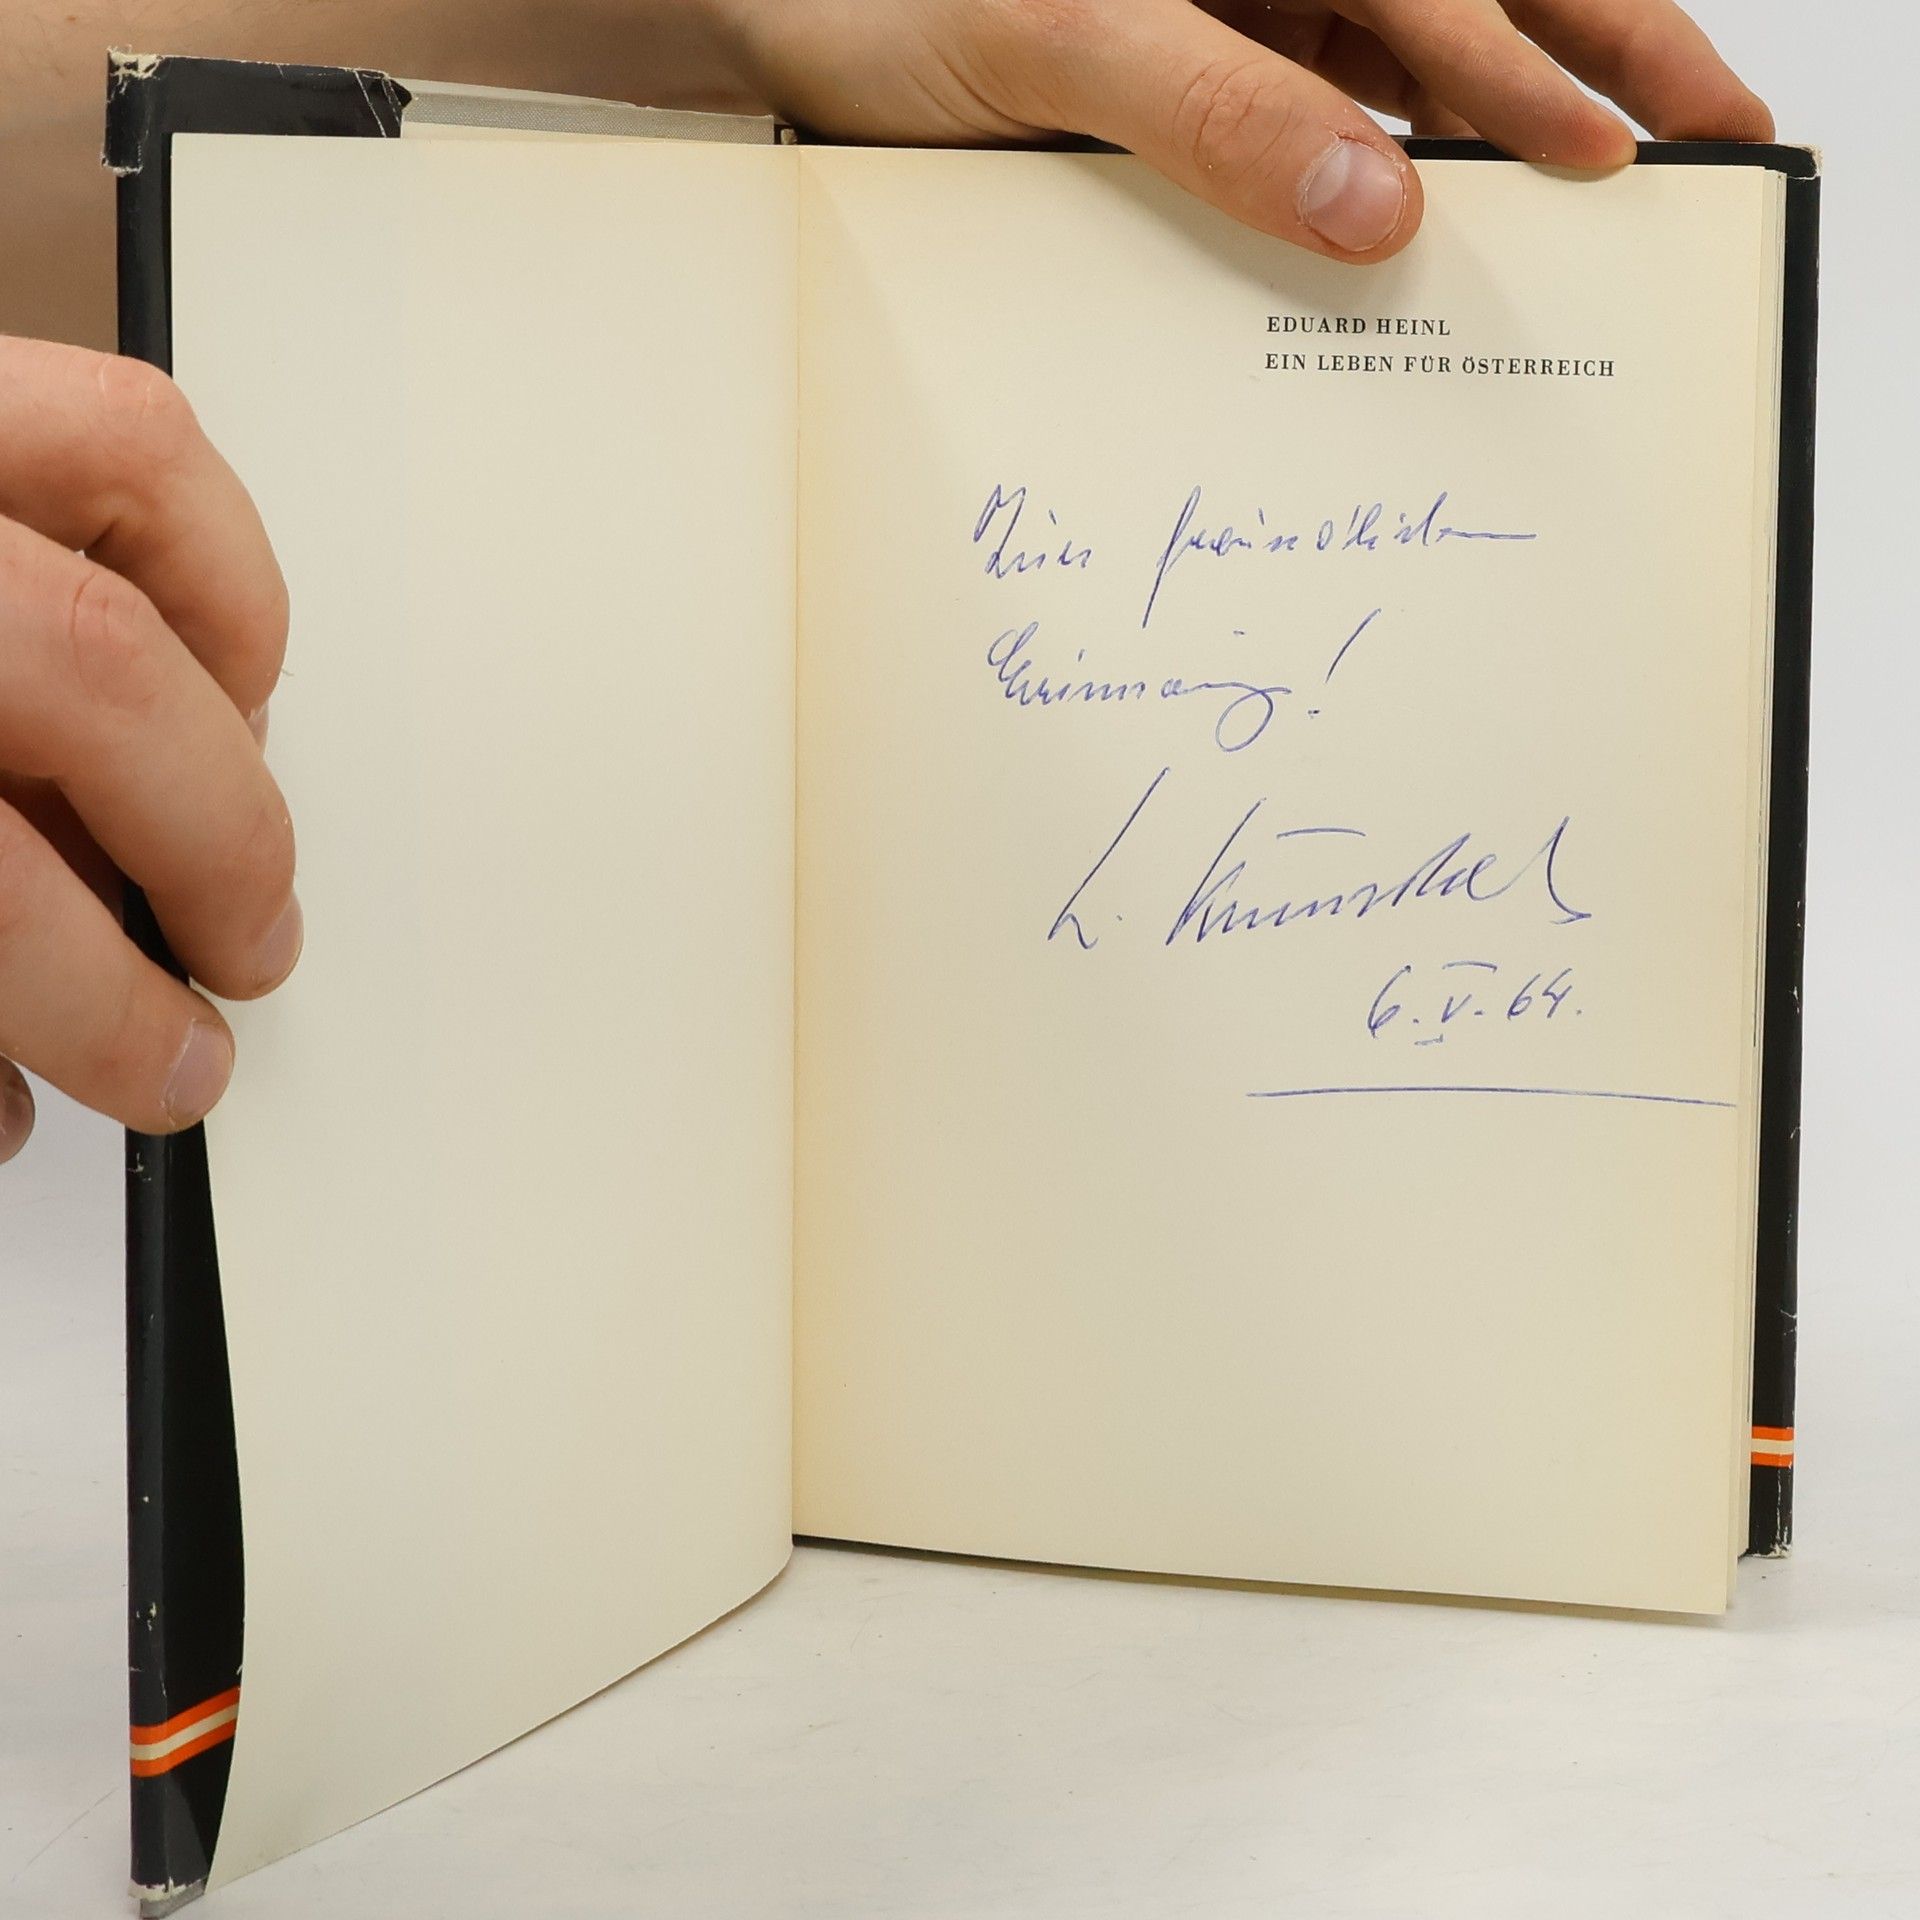 EDUARD HEINL
EIN LEBEN FÜR ÖSTERREICH
Zur freundlichen
Erinnerung!
L.
6. V. 64.